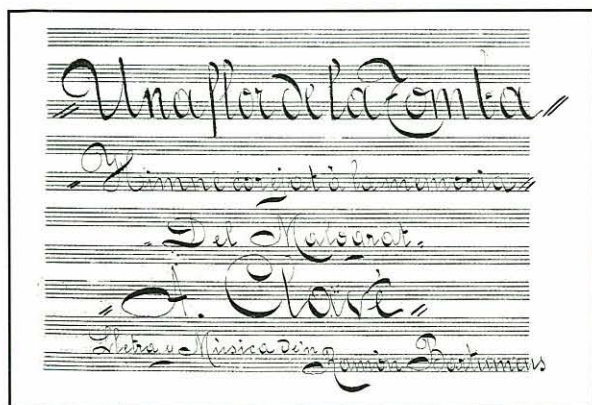 "Una flor de la Tomba"
"Himne corejat à la memoria"
"Del Malograt"
"A. Clavé"
Lletra y Música d'en Ramón Bartumeus